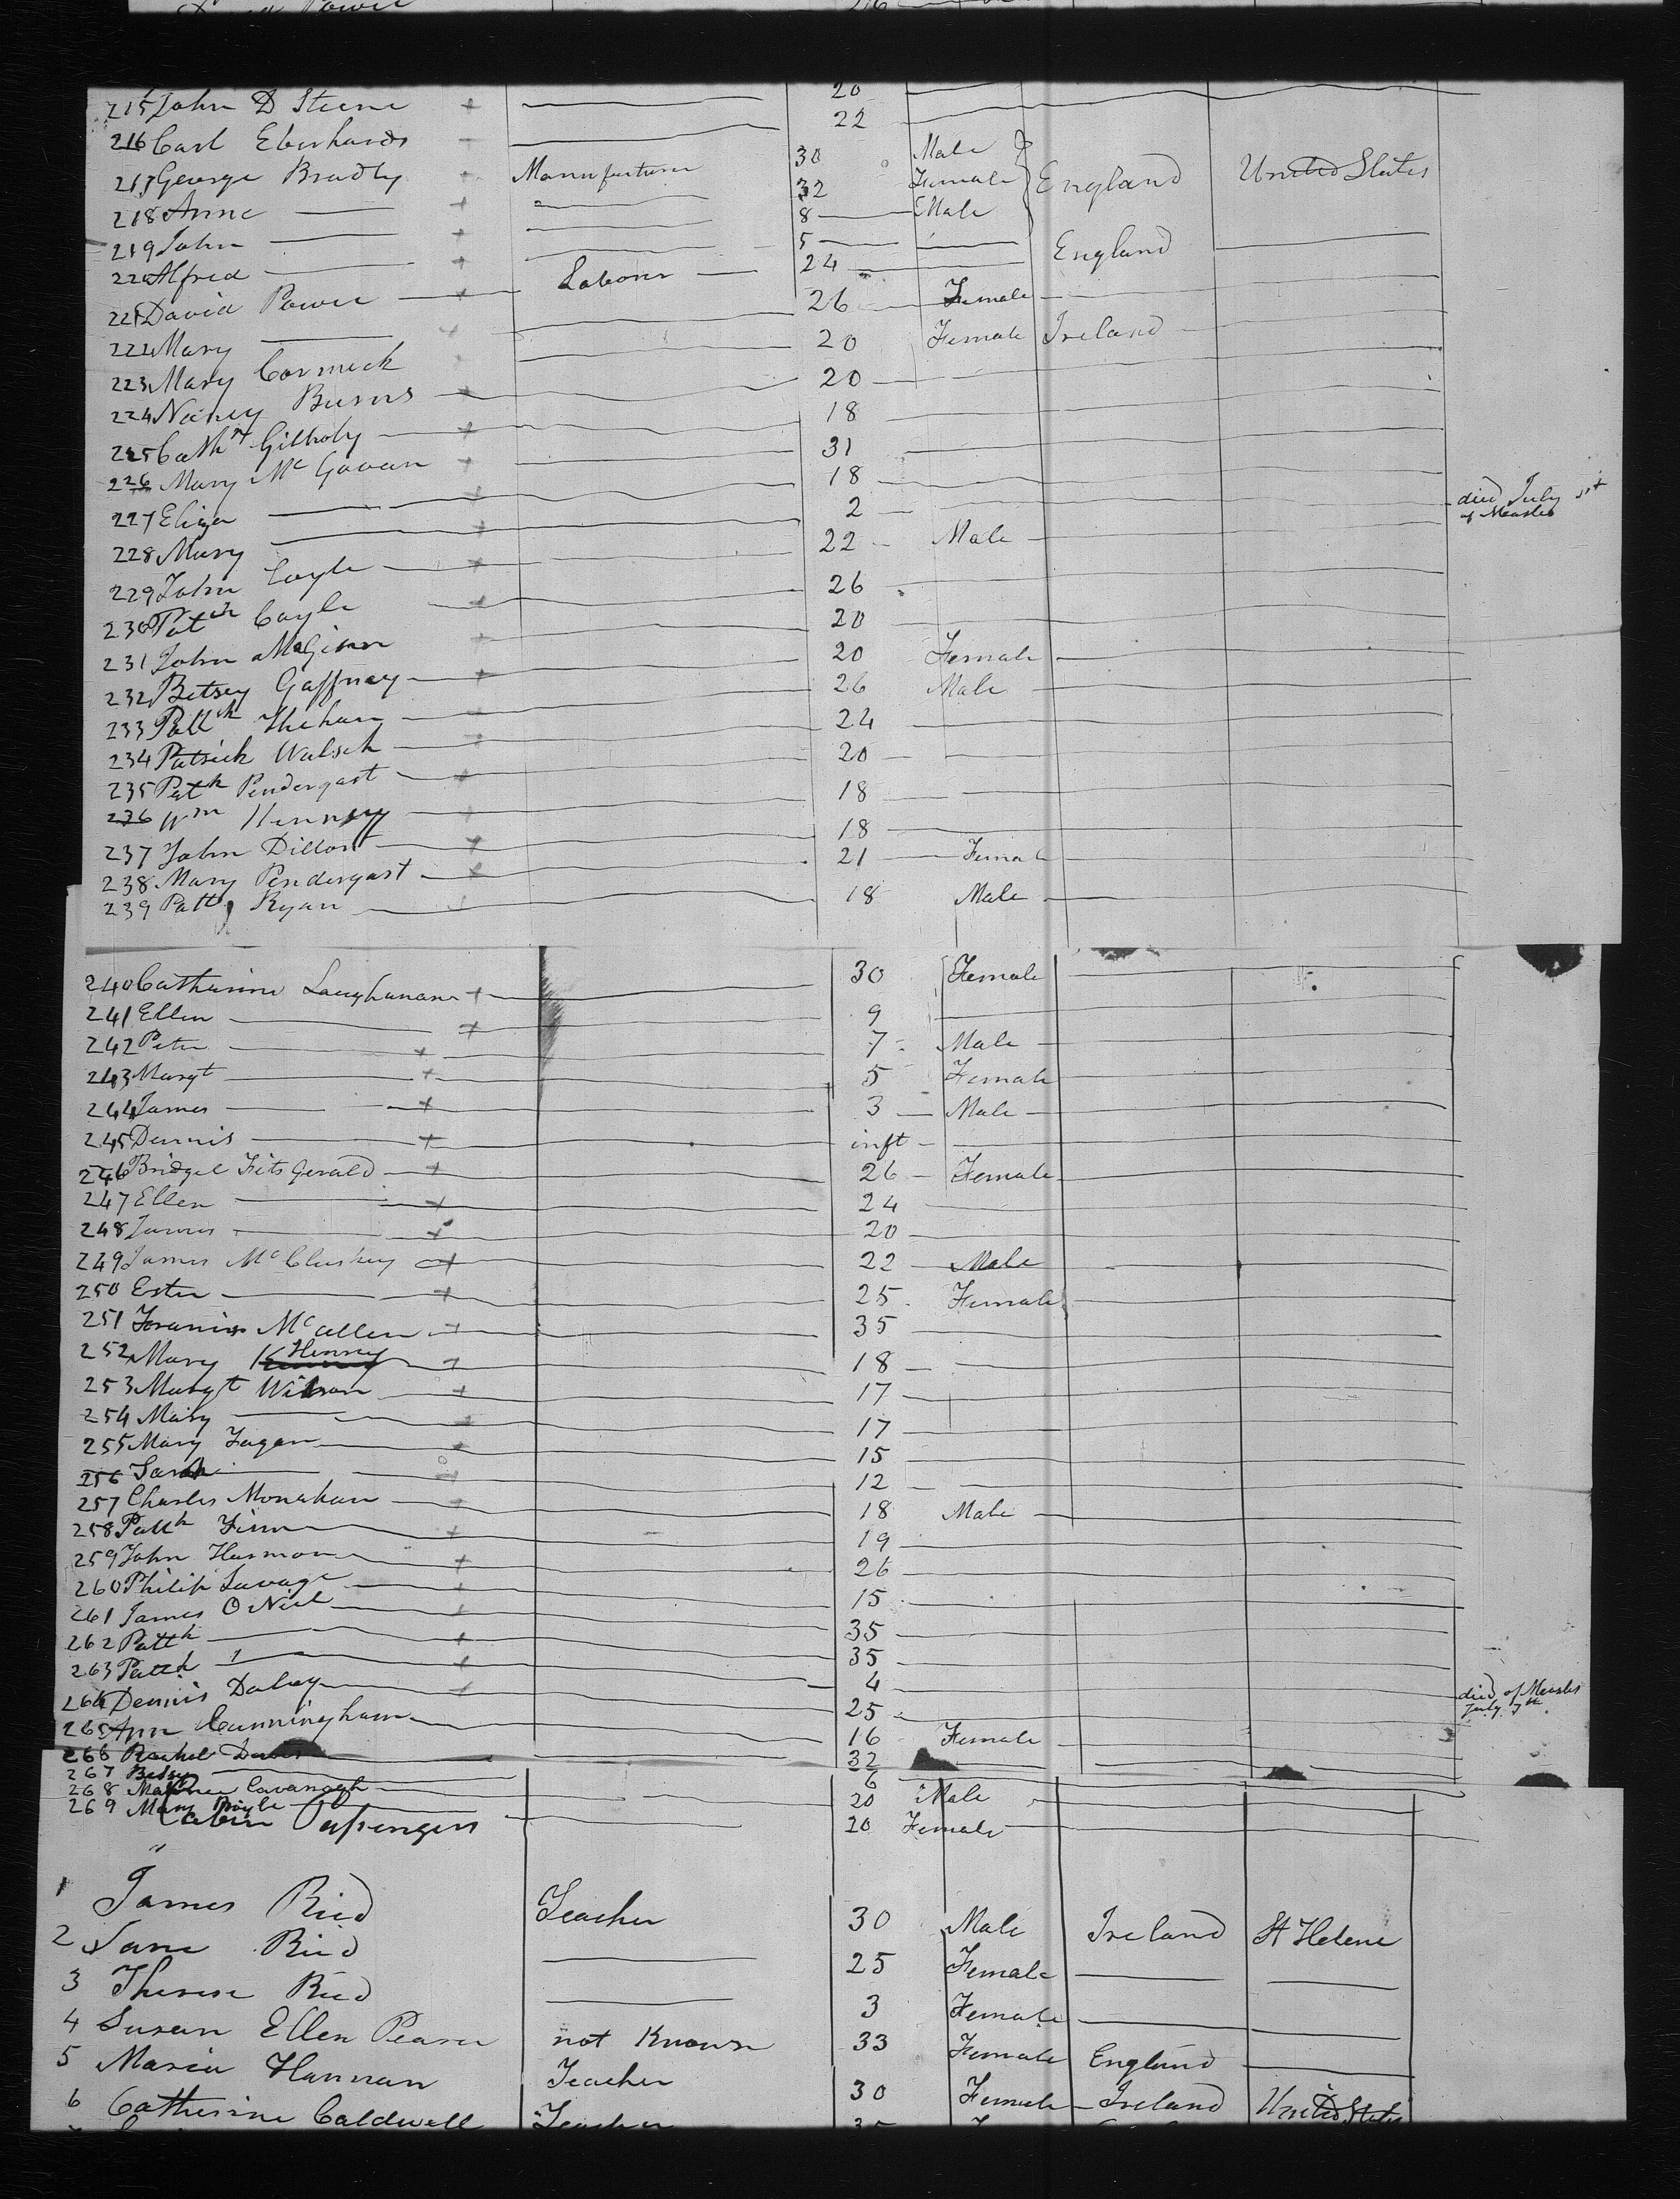 215 John D Steene 20
216 Carl Eberhards 22
217 George Bradly Manufacturer 30 Male England United States
218 Anne 32 Female
219 John 8 Male
220 Alfred 5
221 David Power Laborer 24 England
222 Mary 26 Female
223 Mary Cormick 20 Female Ireland
224 Nancy Burns 20
225 Cathn Gilhooly 18
226 Mary Mc Gowan 31
227 Eliza 18
228 Mary 2 died July 1st of Measles
229 John Coyle 22 Male
230 Patck Coyle 26
231 John McGinn 20
232 Betsey Gaffney 20 Female
233 Pattk 26 Male
234 Patrick Walsch 24
235 Patk Pendergast 20
236 Wm Hennesy 18
237 John Dillon 18
238 Mary Pendergast 21 Female
239 Patt Ryan 18 Male
240 Catharine Laughanan 30 Female
241 Ellen 9
242 Peter 7 Male
243 Margt 5 Female
244 James 3 Male
245 Dennis inft
246 Bridget Fitsgerald 26 Female
247 Ellen 24
248 James 20
249 James McCluskey 22 Male
250 Ester 25 Female
251 Francis McAllen 35
252 Mary Henry 18
253 Margt Wilson 17
254 Mary 17
255 Mary Fagan 15
256 Sarah 12
257 Charles Monahan 18 Male
258 Pattk Finn 19
259 John Harmon 26
260 Philip Savage 15
261 James O Niel 35
262 Pattk 35
263 Pattk 4 died of Measles July 7th
264 Dennis Daley 25
265 Ann Cunningham 16 Female
266 Rachel Davis 32
267 Betsy 6
268 Mathew Cavanagh 20 Male
269 Mary Doyle 20 Female
Cabin Passengers
1 James Ried Teacher 30 Male Ireland St Helene
2 Jane Ried 25 Female
3 Therese Ried 3 Female
4 Susan Ellen Pearce not Known 33 Female England
5 Maria Hannan Teacher 30 Female Ireland United States
6 Catherine Caldwell Teacher 35